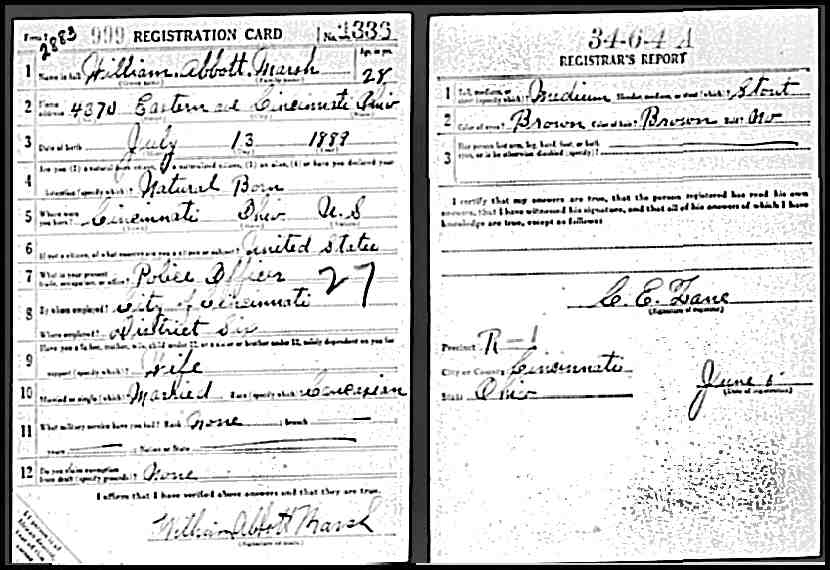 Form 1 2883 999 REGISTRATION CARD No. 1336
1 Name in full William Abbott Marsh Age, in yrs. 28
(Given name) (Family name)
2 Home address 4370 Eastern ave Cincinnati Ohio
3 Date of birth July 13 1889
4 Are you (1) a natural born citizen, (2) a naturalized citizen, (3) an alien, (4) or have you declared your
intention (specify which)? Natural Born
5 Where were you born? Cincinnati Ohio U.S
6 If not a citizen, of what country are you a citizen or subject? United States
7 What is your present trade, occupation, or office? Police Officer 27
8 By whom employed? City of Cincinnati
Where employed? District Six
9 Have you a father, mother, wife, child under 12, or a sister or brother under 12, solely dependent on you for
support (specify which)? Wife
10 Married or single (which)? Married Race (specify which)? Caucasian
11 What military service have you had? Rank None ; branch
years ; Nation or State
12 Do you claim exemption from draft (specify grounds)? None
I affirm that I have verified above answers and that they are true.
William Abbott Marsh
(Signature or mark)
34-6-4 A
REGISTRAR'S REPORT
1 Tall, medium, or short (specify which)? Medium Slender, medium, or stout (which)? Stout
2 Color of eyes? Brown Color of hair? Brown Bald? No
3 Has person lost arm, leg, hand, foot, or both
eyes, or is he otherwise disabled (specify)?
I certify that my answers are true, that the person registered has read his own
answers, that I have witnessed his signature, and that all of his answers of which I have
knowledge are true, except as follows:
C. E. Dane
(Signature of registrar)
Precinct R-1
City or County Cincinnati
State Ohio June 5
(Date of registration)